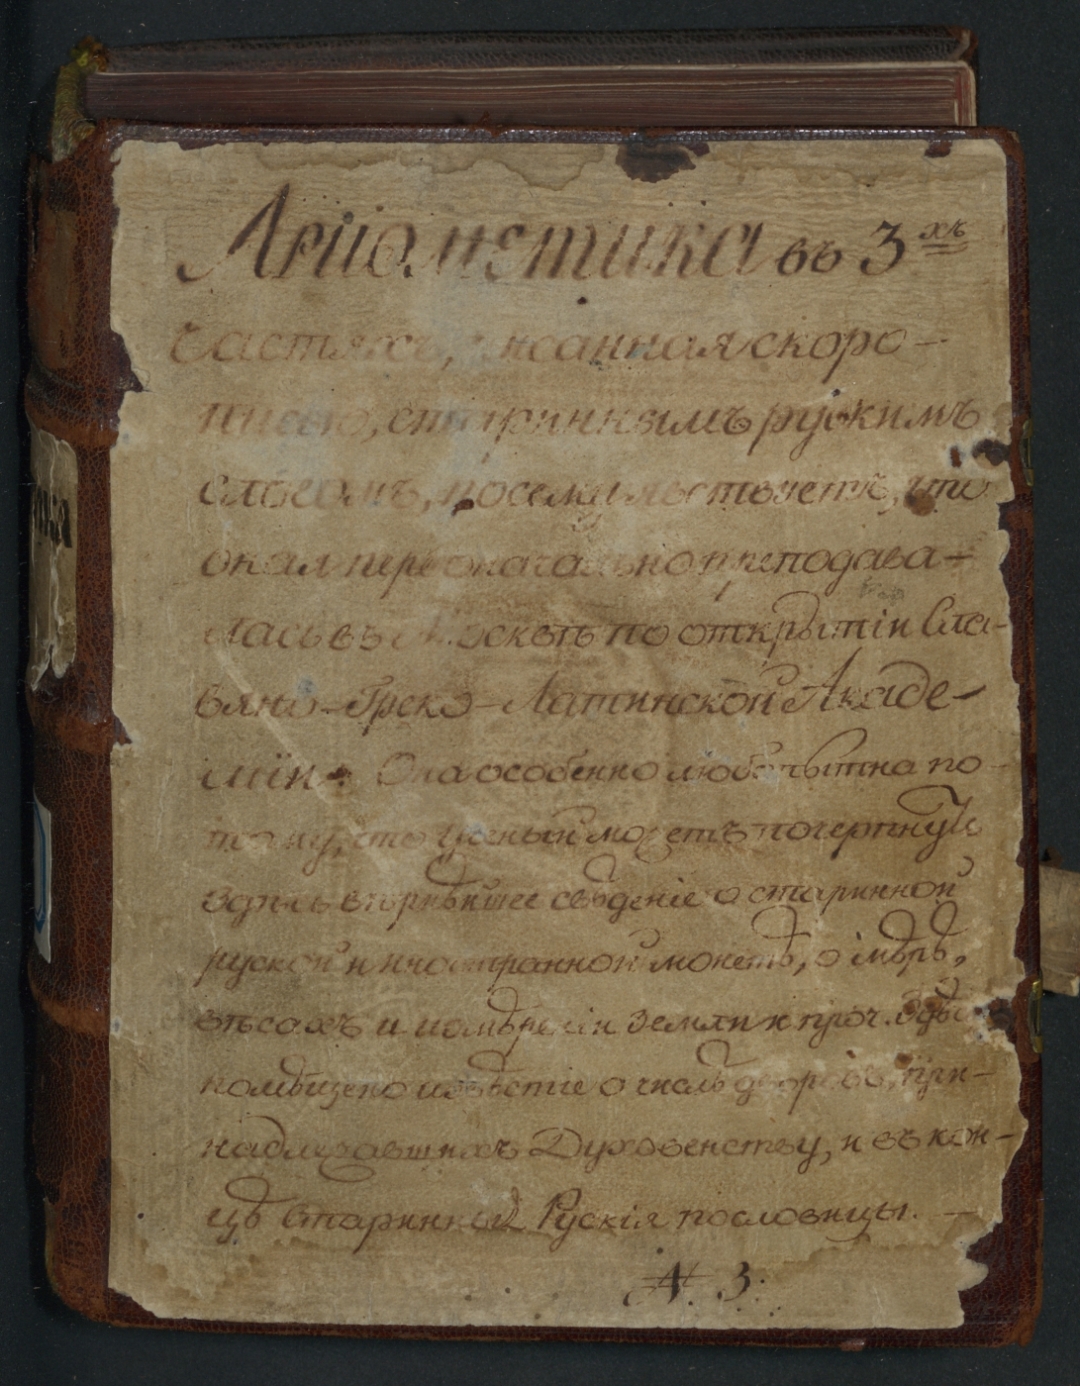 Ариѳметика въ 3хъ
частяхъ, писанная скоро-
писью, стариннымъ рускимъ
слогомъ, посему явствуетъ, что
оная первоначально преподава-
лась въ Москвѣ по открытіи Сла-
вяно-Греко-Латинской Акаде-
міи. Она особенно любопытна по-
тому, что ученый можетъ почерпнуть
здѣсь вѣрнѣйшее свѣденіе о старинной
руской и иностранной монетѣ, о мѣрѣ,
вѣсахъ и измѣреніи земли и проч. Здѣсь
помѣщено извѣстіе о числѣ дворовъ, при-
надлежавшихъ Духовенству, и въ кон-
цѣ старинныя Рускія пословицы.
N. 3.